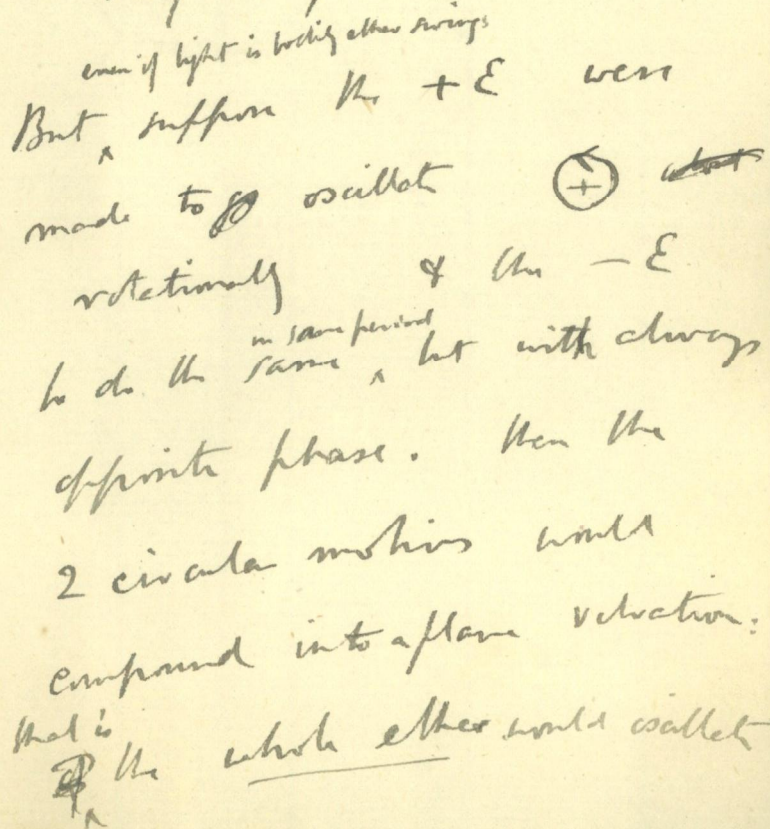 even if light is bodily ether swings
But ^ suppose the + E were
made to go oscillate + what
rotationally & the – E
in same period
to do the same ^ but with always
opposite phase. Then the
2 circular motions would
compound into a plane vibration:
that is
^ the whole ether would oscillate